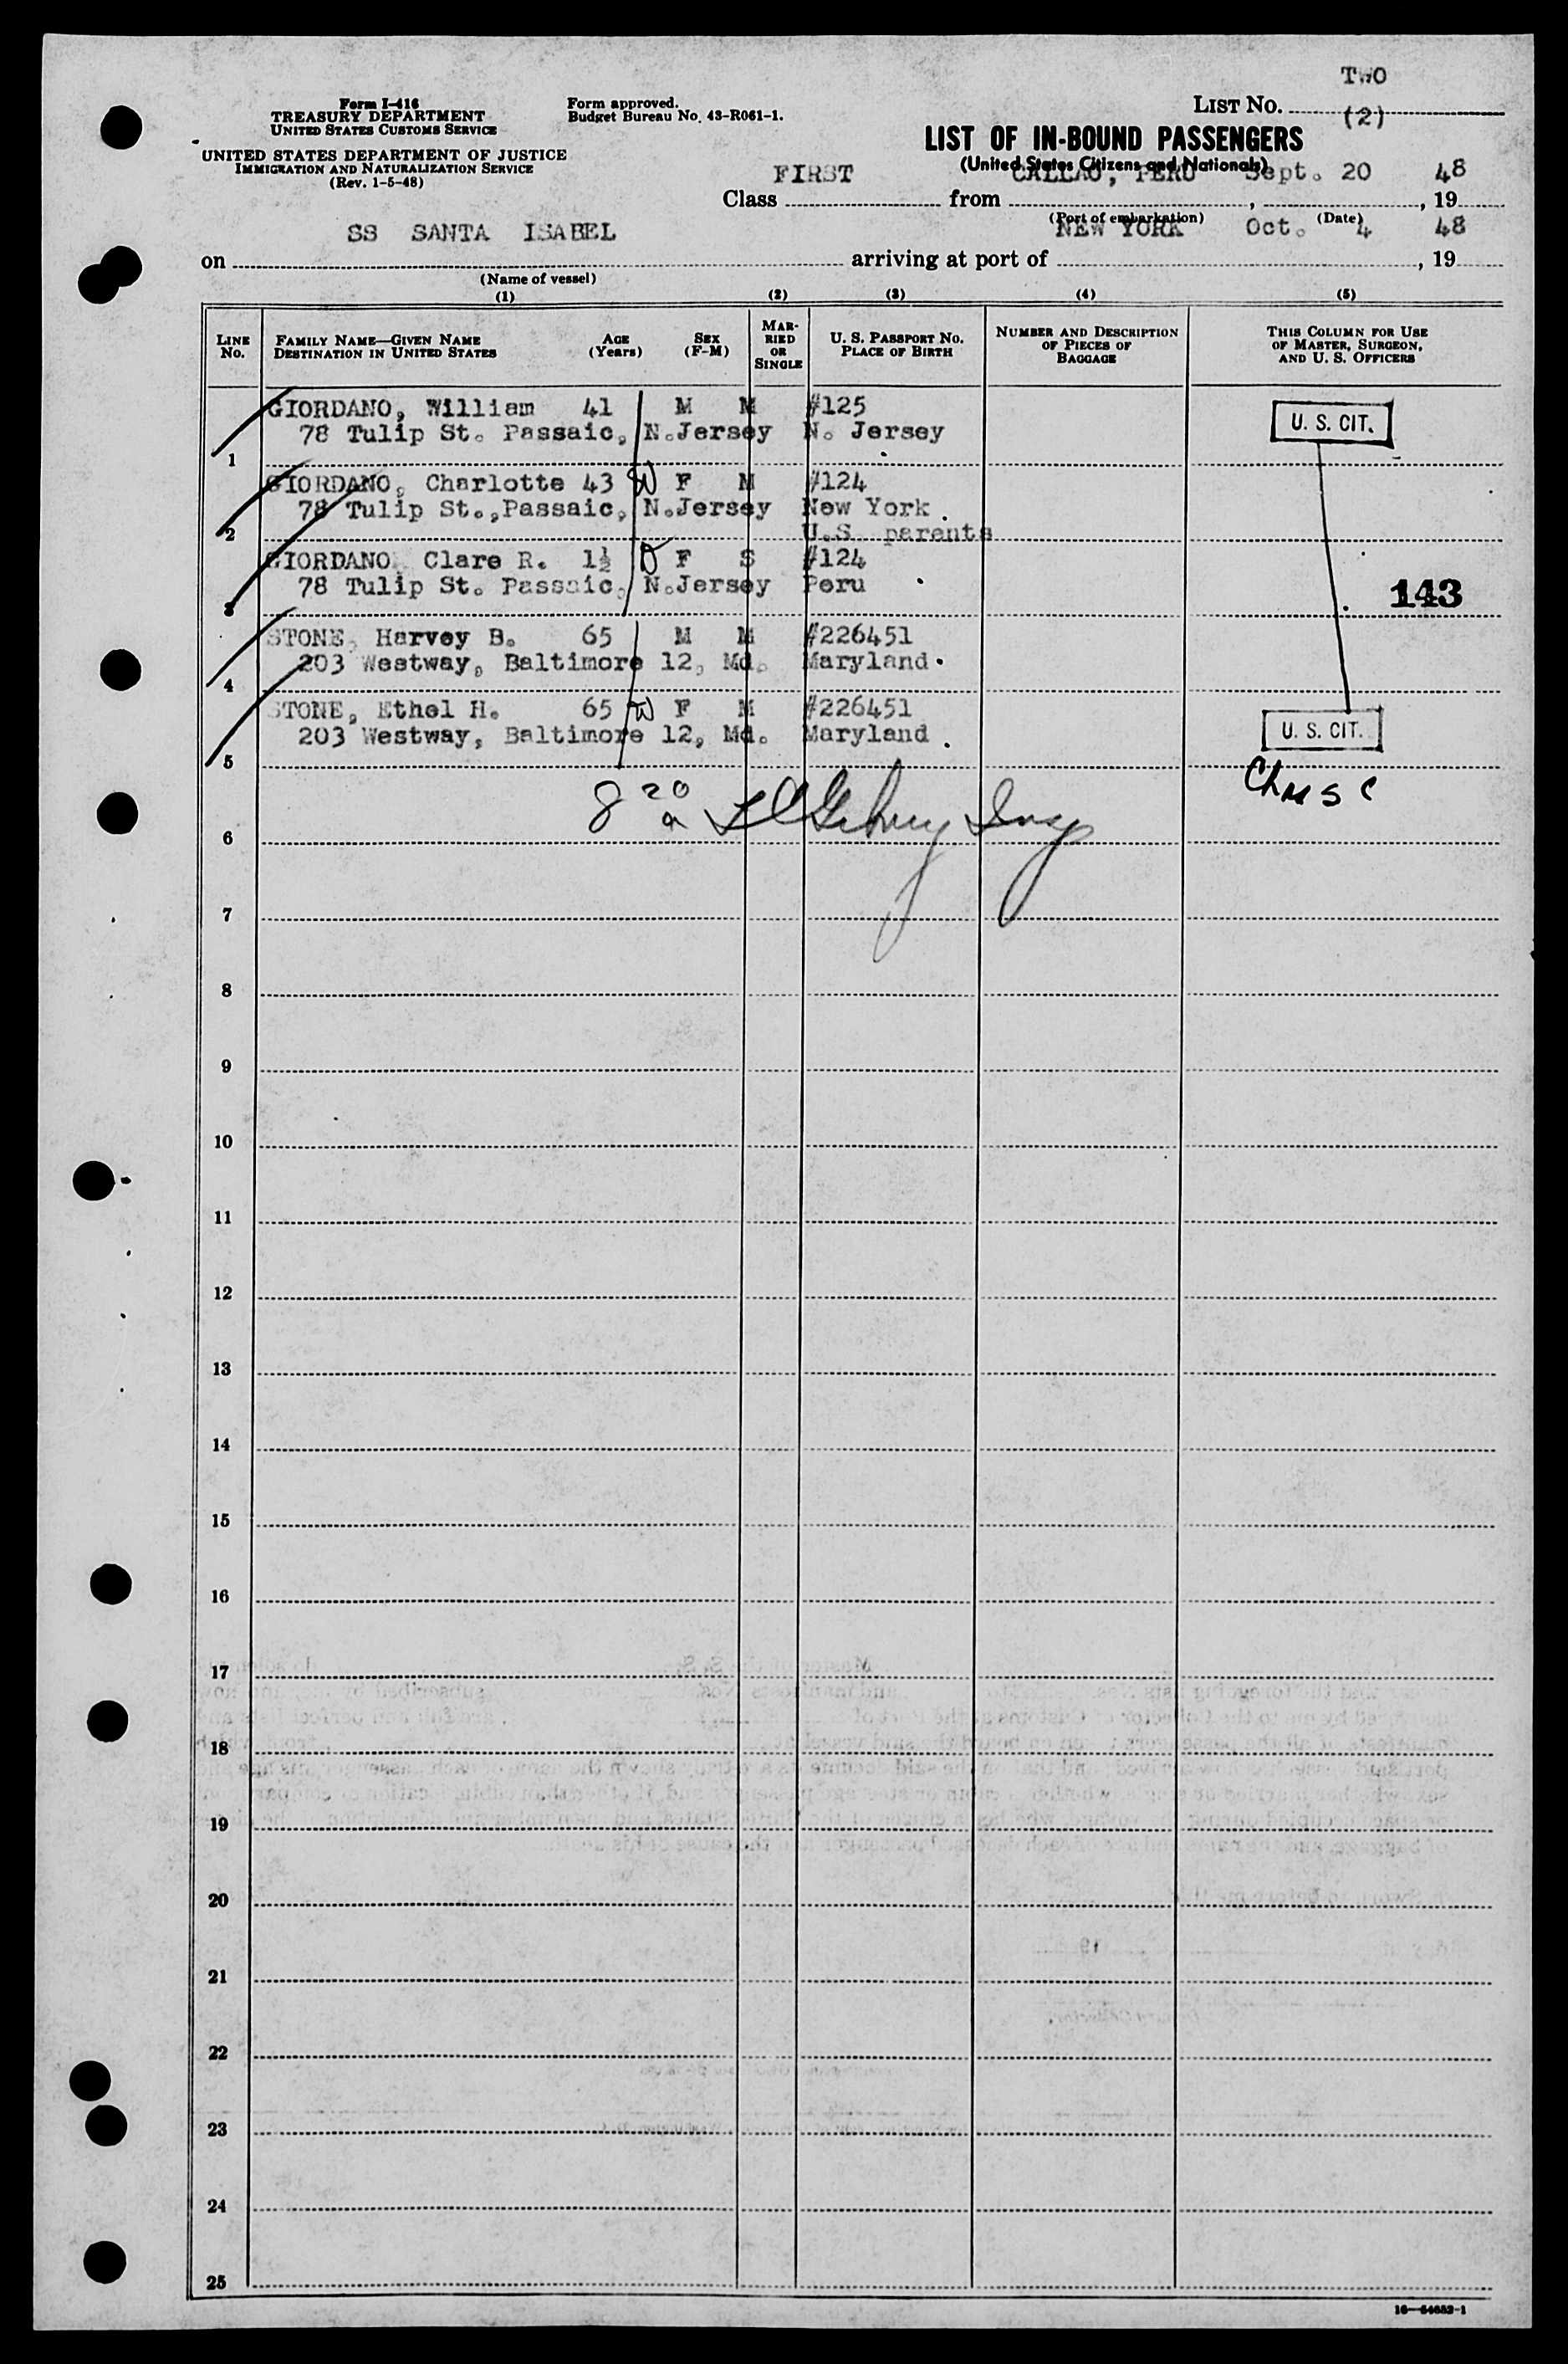 TWO
Form I-416
TREASURY DEPARTMENT
UNITED STATES CUSTOMS SERVICE
UNITED STATES DEPARTMENT OF JUSTICE
IMMIGRATION AND NATURALIZATION SERVICE
(Rev. 1-5-48)
Form approved.
Budget Bureau No. 43-R061-1.
LIST NO. (2)
LIST OF IN-BOUND PASSENGERS
(United States Citizens and Nationals)
Class FIRST from CALLAO, PERU, Sept. 20, 1948
(Port of embarkation) (Date)
on SS SANTA ISABEL arriving at port of NEW YORK Oct. 4, 1948
(Name of vessel)
(1) (2) (3) (4) (5)
LINE NO.
FAMILY NAME—GIVEN NAME
DESTINATION IN UNITED STATES
AGE (Years)
SEX (F-M)
MARRIED OR SINGLE
U. S. PASSPORT NO.
PLACE OF BIRTH
NUMBER AND DESCRIPTION OF PIECES OF BAGGAGE
THIS COLUMN FOR USE OF MASTER, SURGEON, AND U. S. OFFICERS
GIORDANO, William 41 M M #125 U. S. CIT.
78 Tulip St. Passaic, N.Jersey N. Jersey
1
GIORDANO, Charlotte 43 W F M #124
78 Tulip St.,Passaic, N.Jersey New York
2 U.S. parents
GIORDANO Clare R. 1½ D F S #124
78 Tulip St. Passaic, N.Jersey Peru 143
3
STONE, Harvey B. 65 M M #226451
203 Westway, Baltimore 12, Md. Maryland
4
STONE, Ethel H. 65 W F M #226451
203 Westway, Baltimore 12, Md. Maryland U. S. CIT.
5
8 20 a Insp
6
7
8
9
10
11
12
13
14
15
16
17
18
19
20
21
22
23
24
25